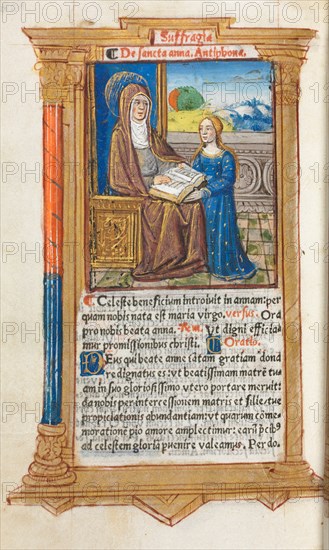 Suffragia
De sancta anna. Antiphona.
Celeste beneficium introiuit in annam: per
quam nobis nata est maria virgo. versus. Ora
pro nobis beata anna. Ut digni efficia
mur promissionibus christi. Oratio.
Deus qui beate anne tātam gratiam dona
re dignatus es: vt beatissimam matrē tuā
in suo gloriosissimo vtero portare meruit
da nobis per intercessionem matris et filie: tue
propiciationis abundantiam: vt quarum cōme
morationē pio amore amplectimur: earū
ad celestem gloriā puenire valeamus. Per do.